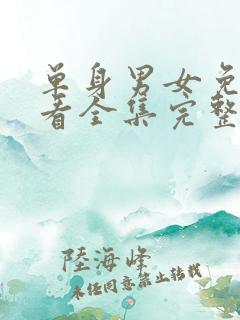 单身男女免
看全集完整
陸海峰
未经同意禁止转载